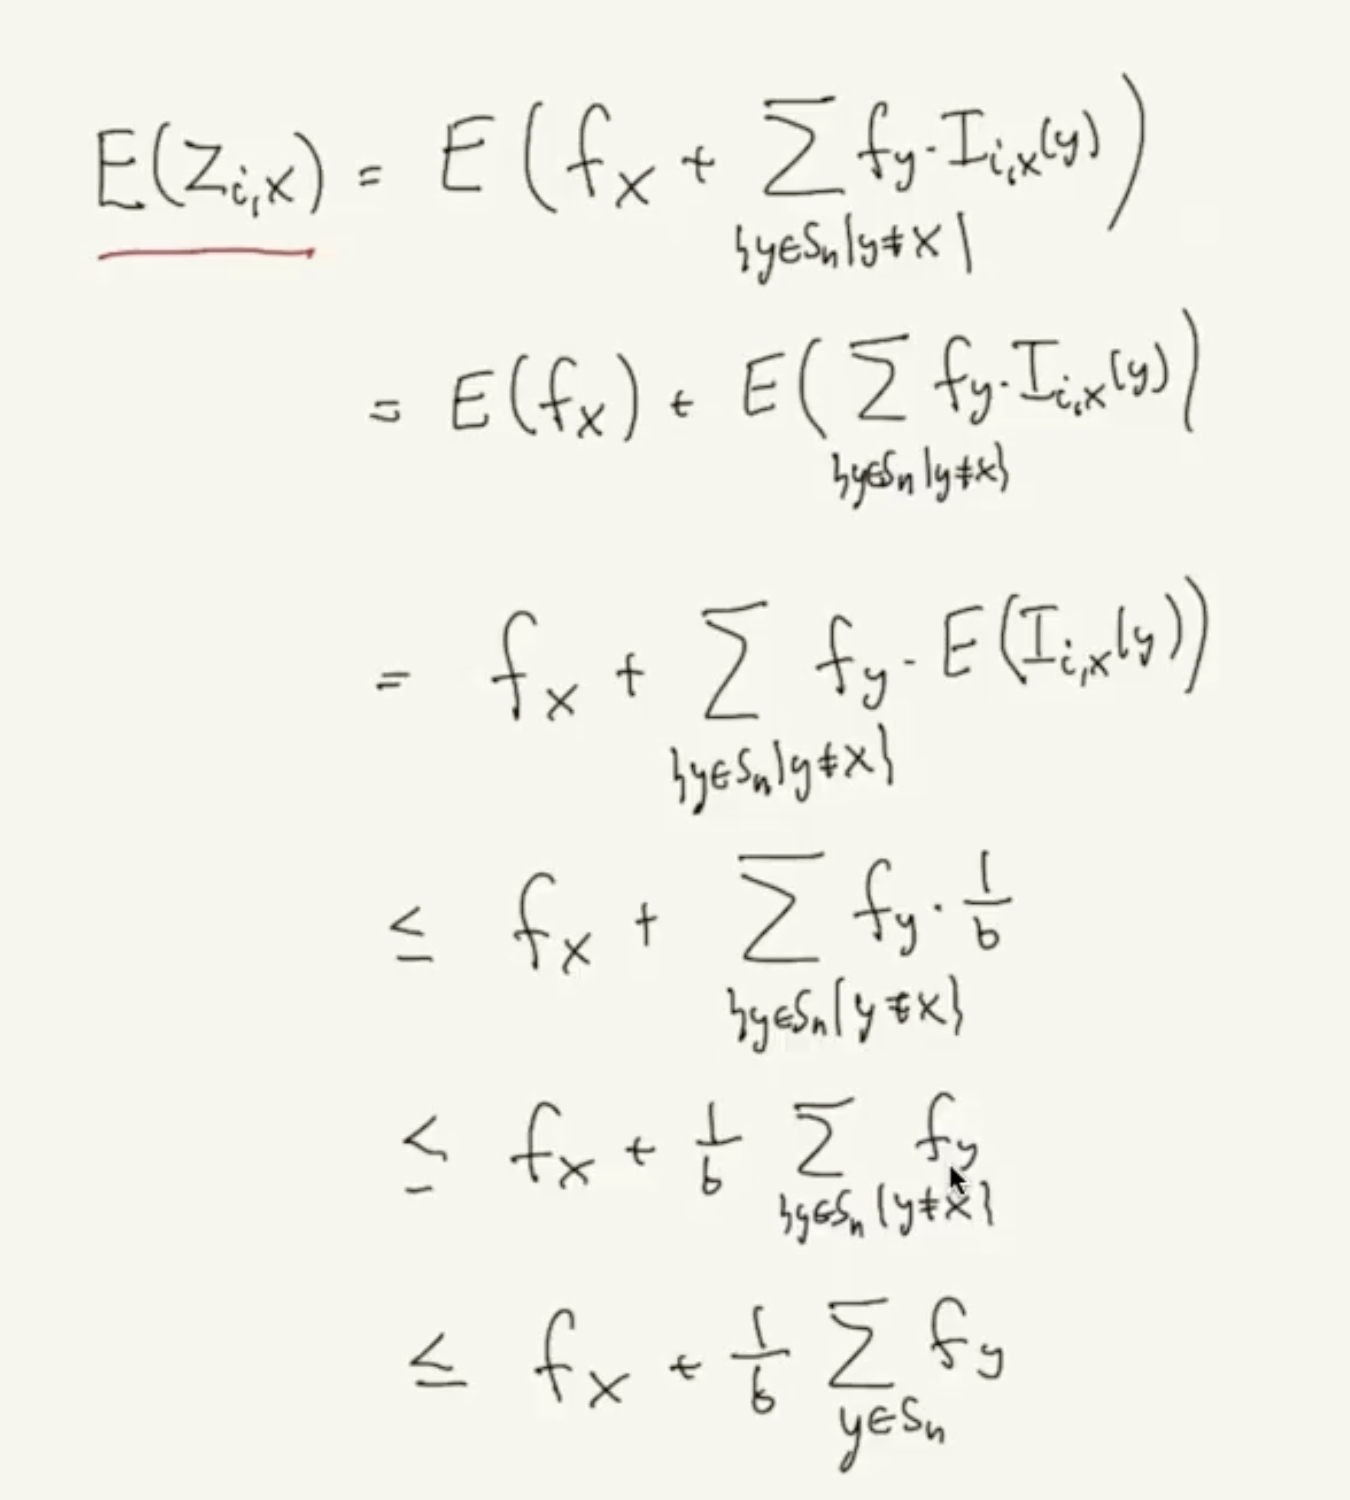 E(Z_{i,x}) = E(f_x + Σ_{{y∈S_n|y≠x}} f_y · I_{i,x}(y))
= E(f_x) + E(Σ_{{y∈S_n|y≠x}} f_y · I_{i,x}(y))
= f_x + Σ_{{y∈S_n|y≠x}} f_y · E(I_{i,x}(y))
≤ f_x + Σ_{{y∈S_n|y≠x}} f_y · 1/b
≤ f_x + 1/b Σ_{{y∈S_n|y≠x}} f_y
≤ f_x + 1/b Σ_{y∈S_n} f_y